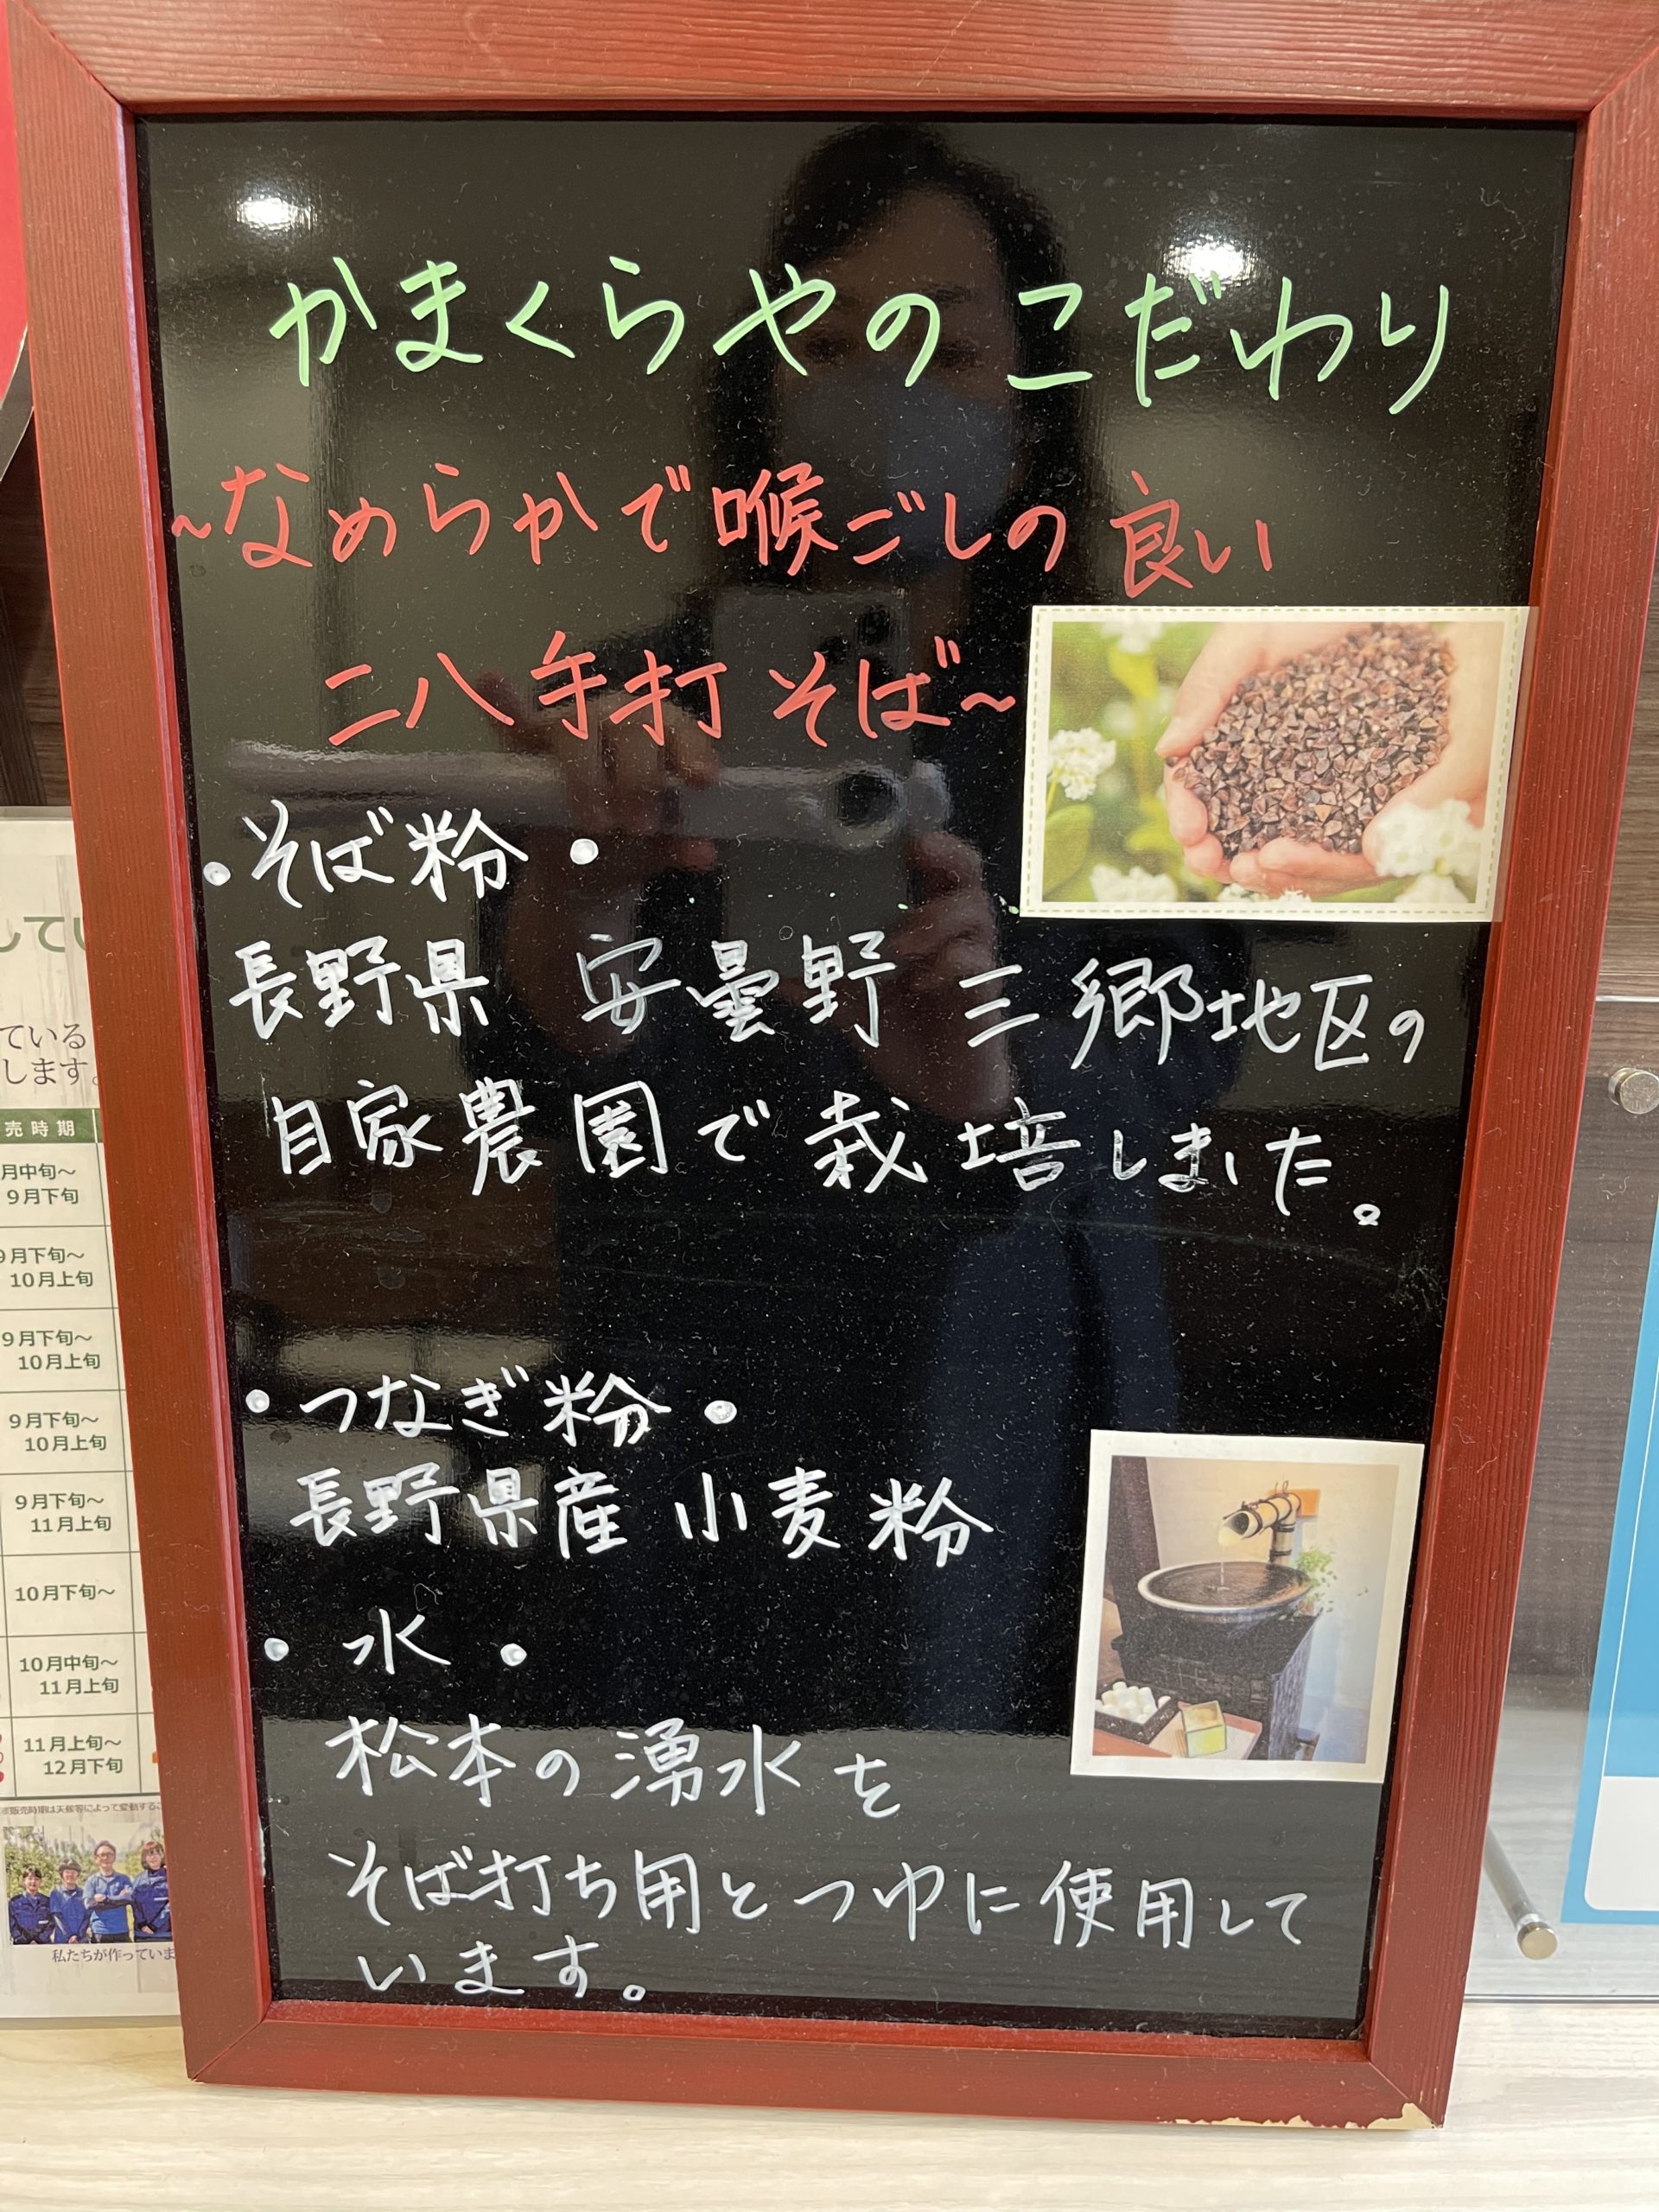 かまくらやのこだわり
~なめらかで喉ごしの良い
二八手打そば~
・そば粉・
長野県 安曇野 三郷地区の
自家農園で栽培しました。
・つなぎ粉・
長野県産 小麦粉
・水・
松本の湧水を
そば打ち用とつゆに使用して
います。
してい
ている
します。
売時期
月中旬～
9月下旬
9月下旬～
10月上旬
9月下旬～
10月上旬
9月下旬～
10月上旬
9月下旬～
11月上旬
10月下旬～
10月中旬～
11月上旬
11月上旬～
12月下旬
販売時期は天候等によって変動するこ
私たちが作っていま